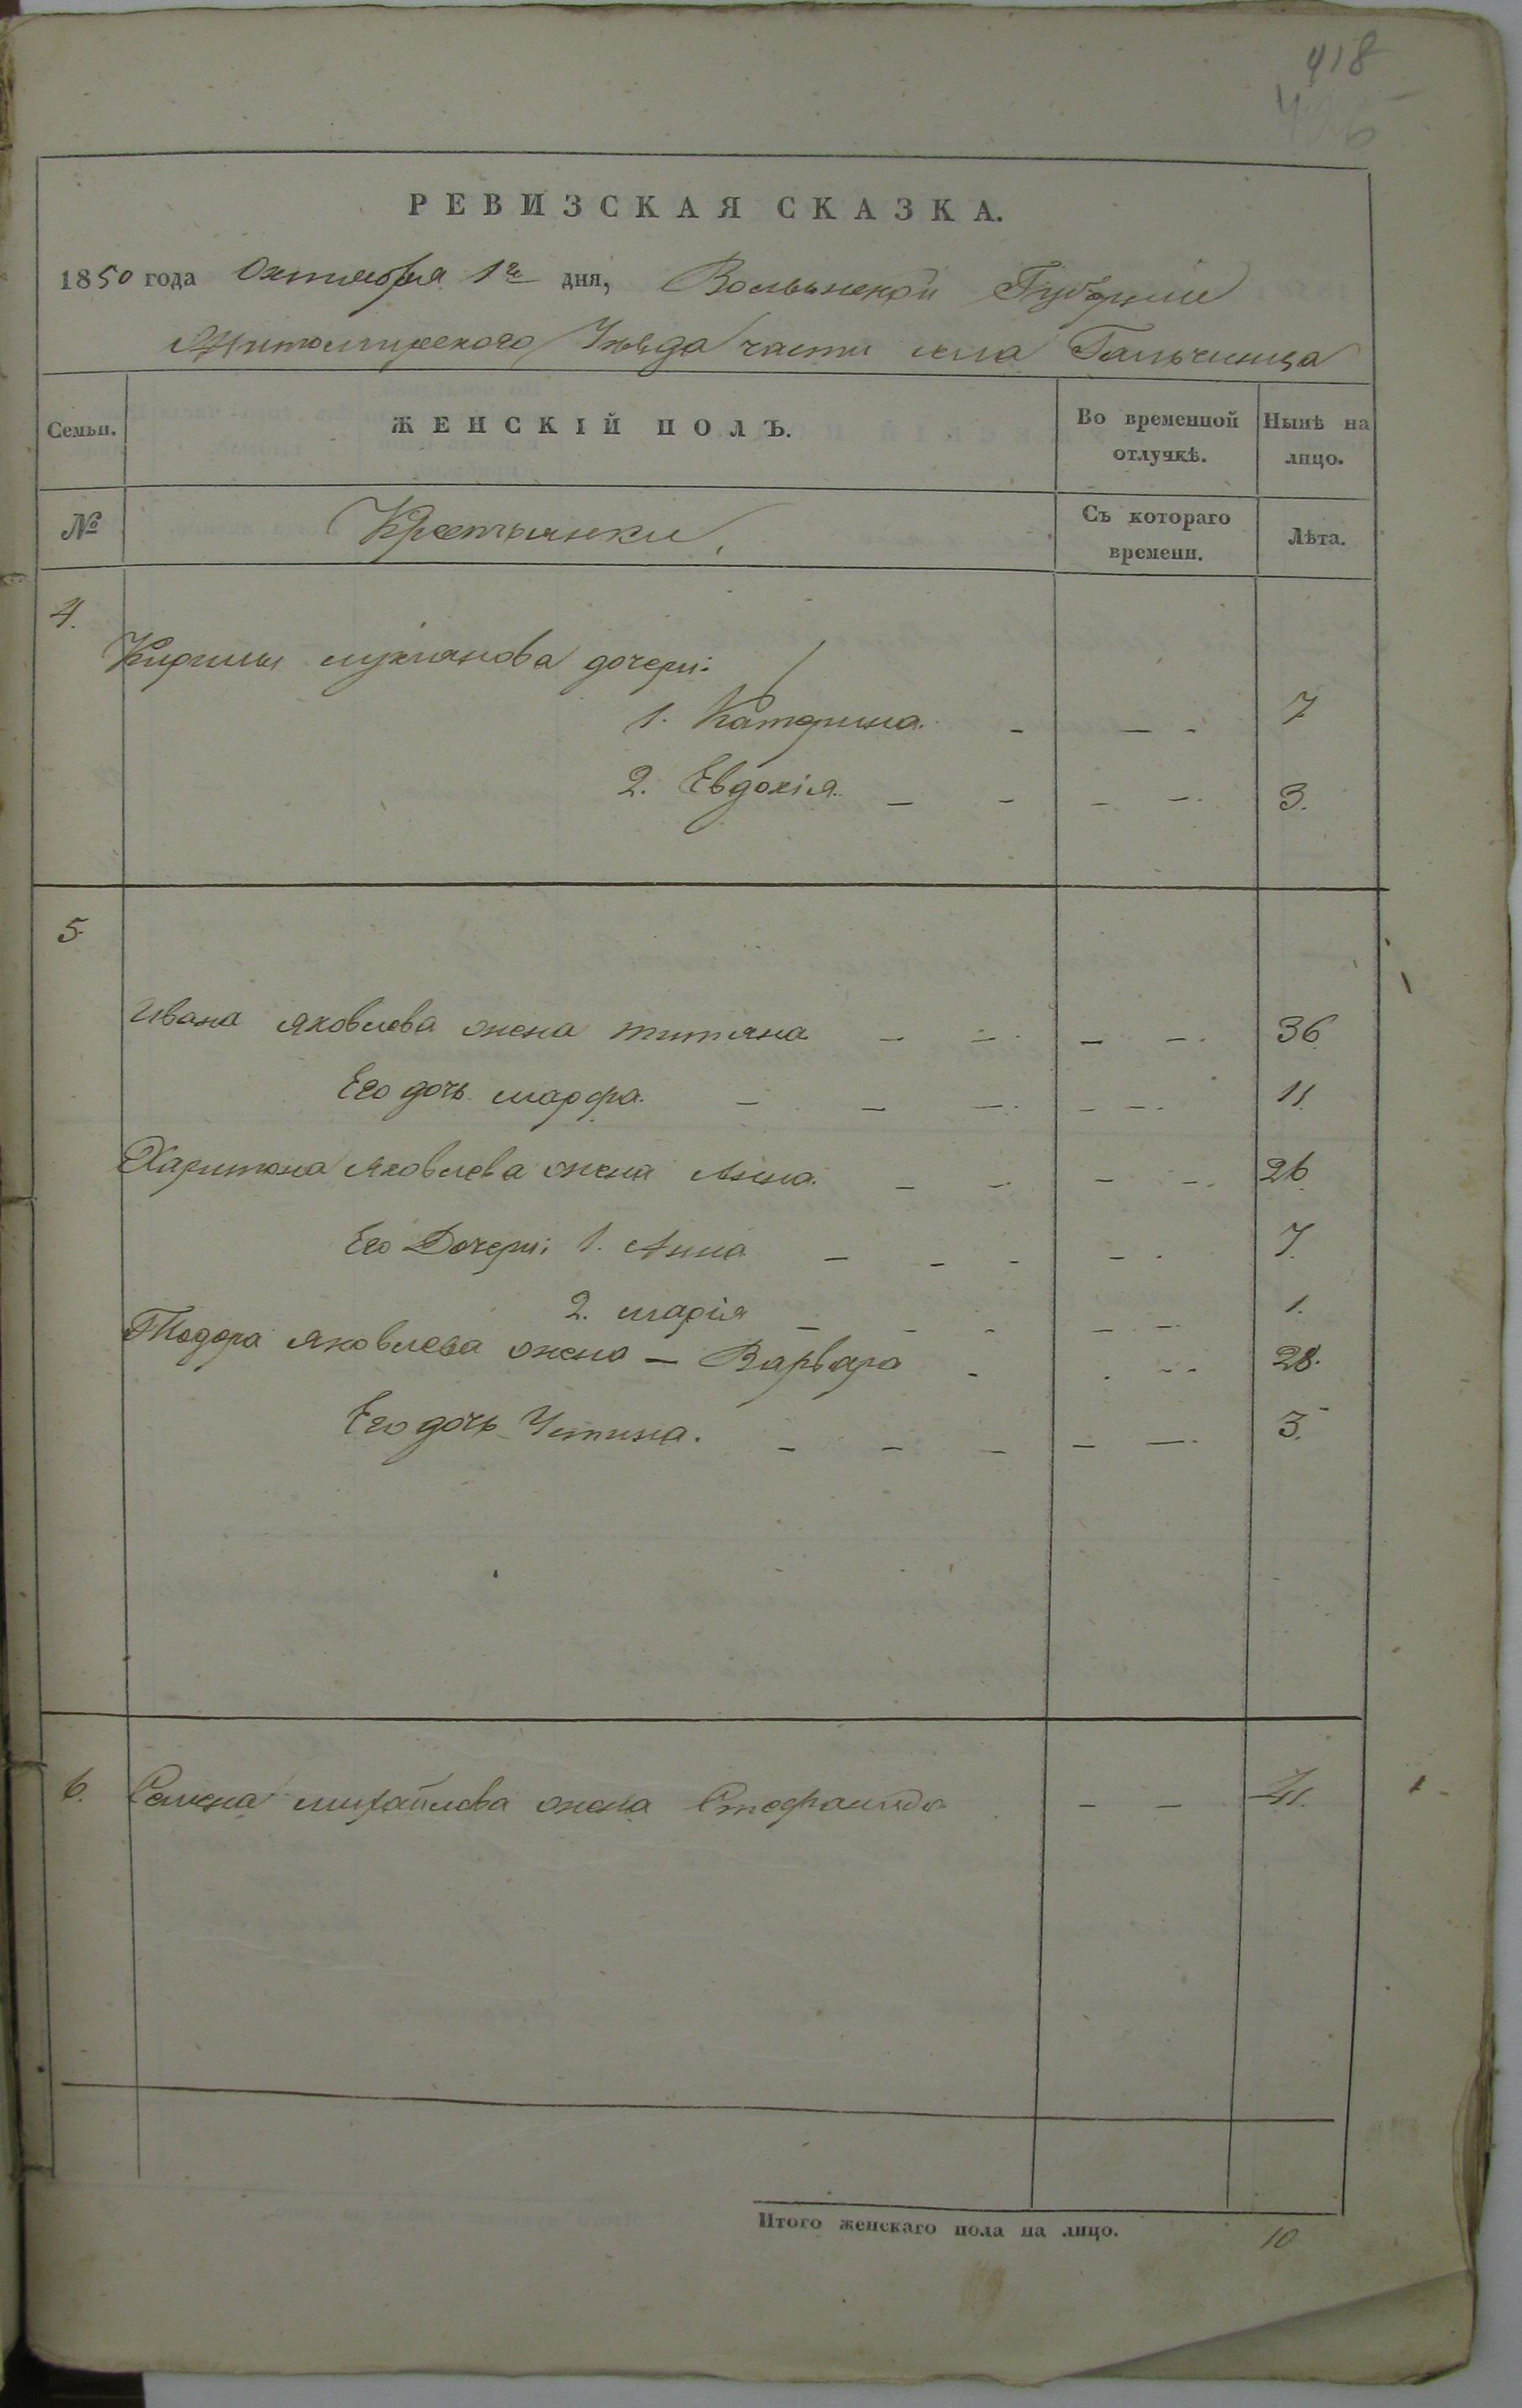 418
РЕВИЗСКАЯ СКАЗКА.
1850 года Октября 1го дня, Волынской Губерніи
Житомирского Уѣзда части села Гальчинца
Семьи. ЖЕНСКІЙ ПОЛЪ. Во временной отлучкѣ. Нынѣ на лицо.
№ Крестьянки. Съ котораго времени. Лѣта.
4.
Кирилы лукianова дочери:
1. Катерина. 7
2. Евдокія. 3.
5
Ивана яковлева жена титяна 36
Его дочь марфа. 11
Харитона яковлева жена Анна. 26
Его Дочери: 1. Анна 7.
2. марія 1.
Тодора яковлева жена — Варвара 28.
Его дочь Устина. 3.
6. Семена михайлова жена Стефанида 41.
Итого женскаго пола на лицо. 10